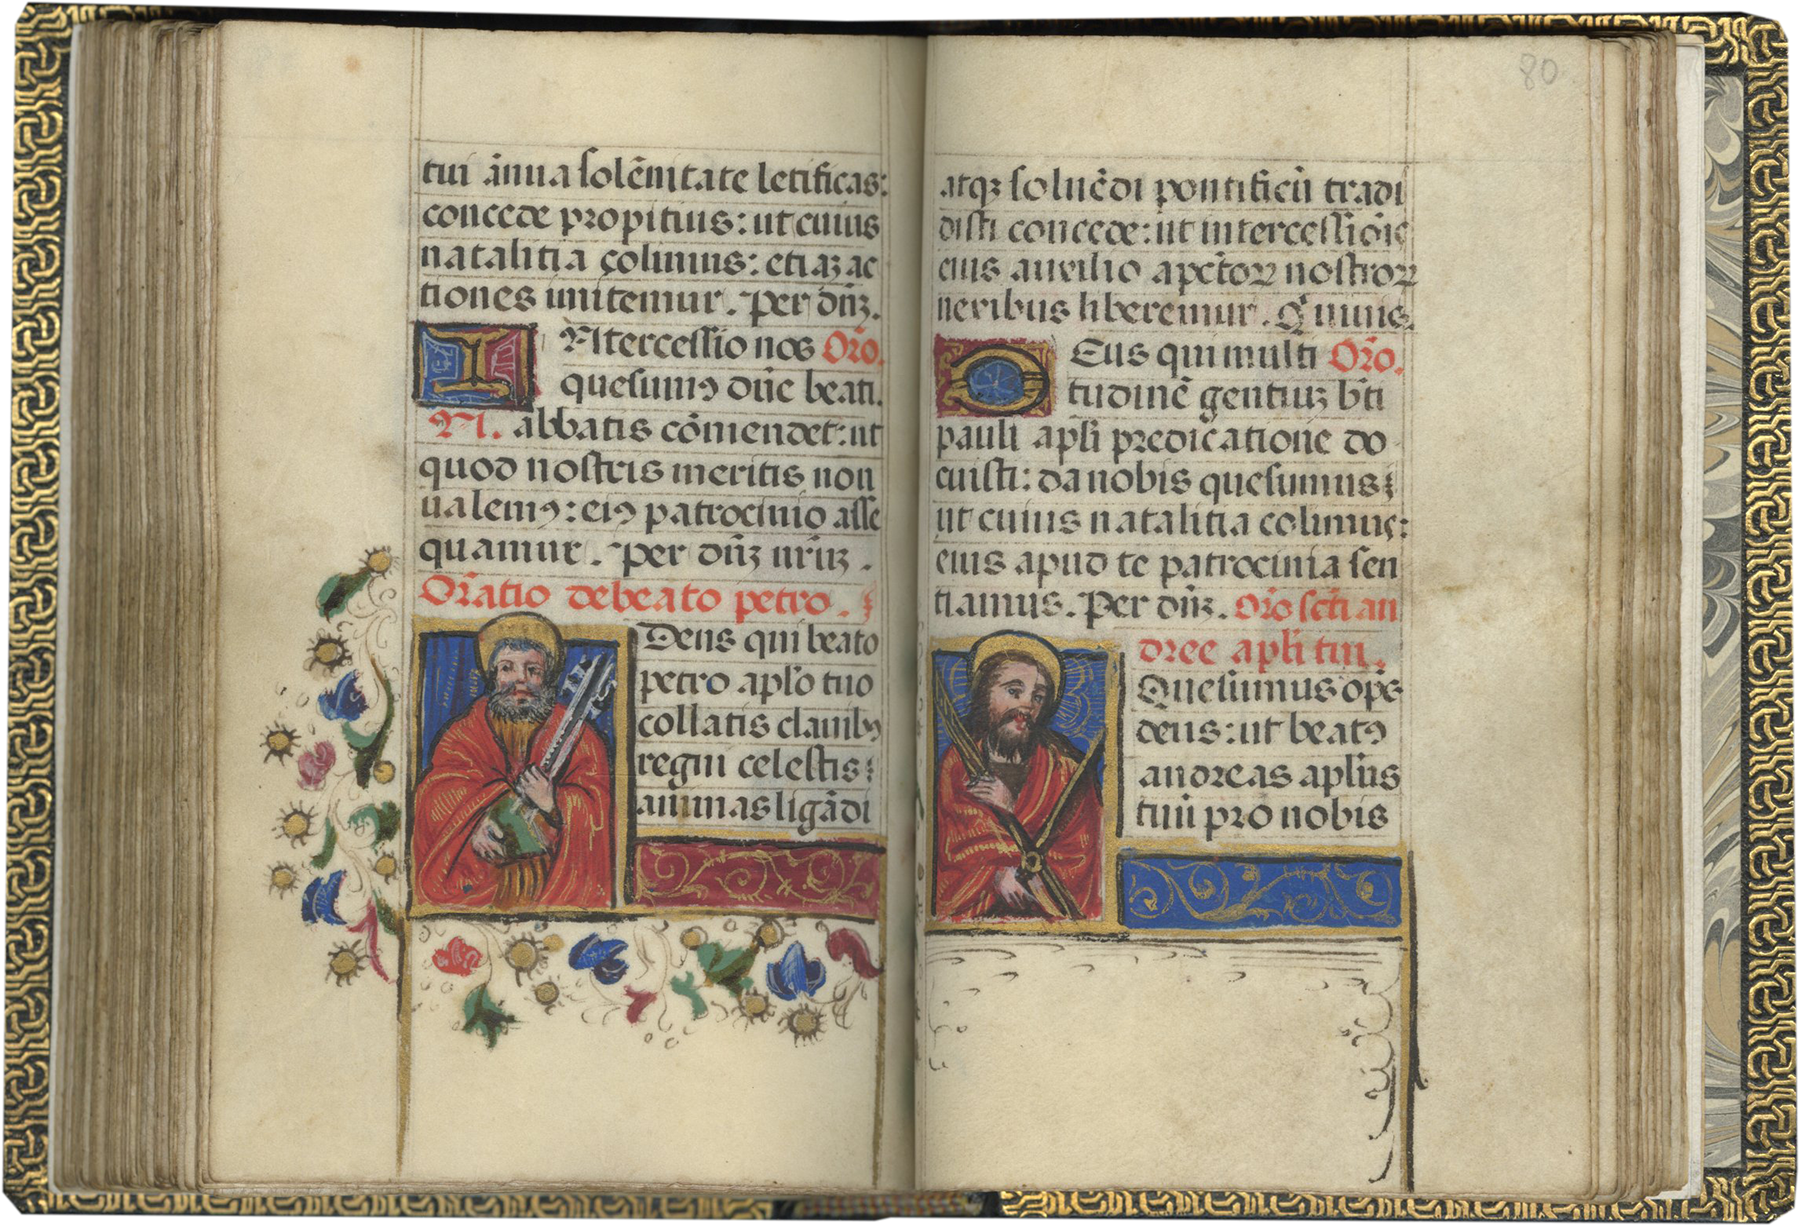 tui ãnua solẽnitate letificas:
concede propitius: ut cuius
natalitia colimus: etiaꝫ ac
tiones imitemur. Per dñꝫ.
INtercessio nos Orõ.
quesumꝰ dñe beati.
M. abbatis cõmendet: ut
quod nostris meritis non
ualemꝰ: eiꝰ patrocinio asse
quamur. Per dñꝫ nrũꝫ.
Orãtio de beato petro.
Deus qui beato
petro aplõ tuo
collatis clauibꝰ
regni celestis:
animas ligãdi
80
atqꝫ soluẽdi pontificiũ tradi
disti concede: ut intercessiõis
eius auxilio a pctõꝝ nostroꝝ
nexibus liberemur. Qui uiuis.
DEus qui multi Orõ.
tudinẽ gentiuꝫ bti
pauli apli predicatione do
cuisti: da nobis quesumus:
ut cuius natalitia colimus:
eius apud te patrocinia sen
tiamus. Per dñꝫ. Orõ scti an
dree apli tui.
Quesumus opẽs
deus: ut beatꝰ
andreas aplus
tuũ pro nobis